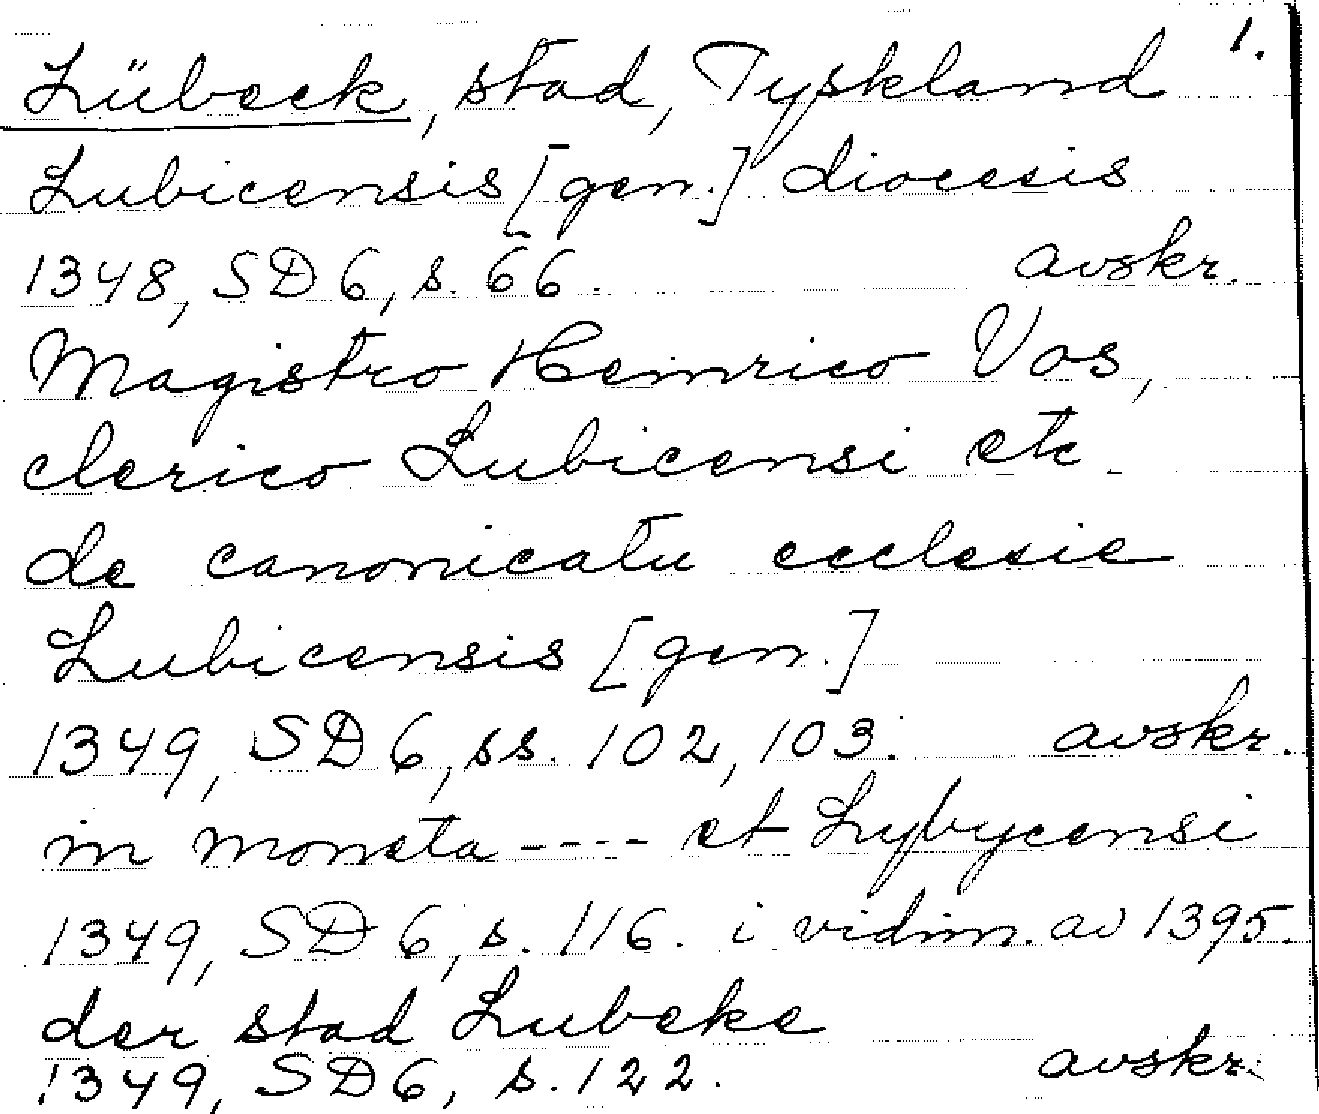 1.
Lübeck, stad, Tyskland
Lubicensis [gen.] diocesis
1348, SD 6, s. 66. avskr.
Magistro Heinrico Vos,
clerico Lubicensi etc.
de canonicatu ecclesie
Lubicensis [gen.]
1349, SD 6, ss. 102, 103. avskr.
in moneta ---- et Lybycensi
1349, SD 6, s. 116. i vidim. av 1395.
der stad Lubeke
1349, SD 6, s. 122. avskr.